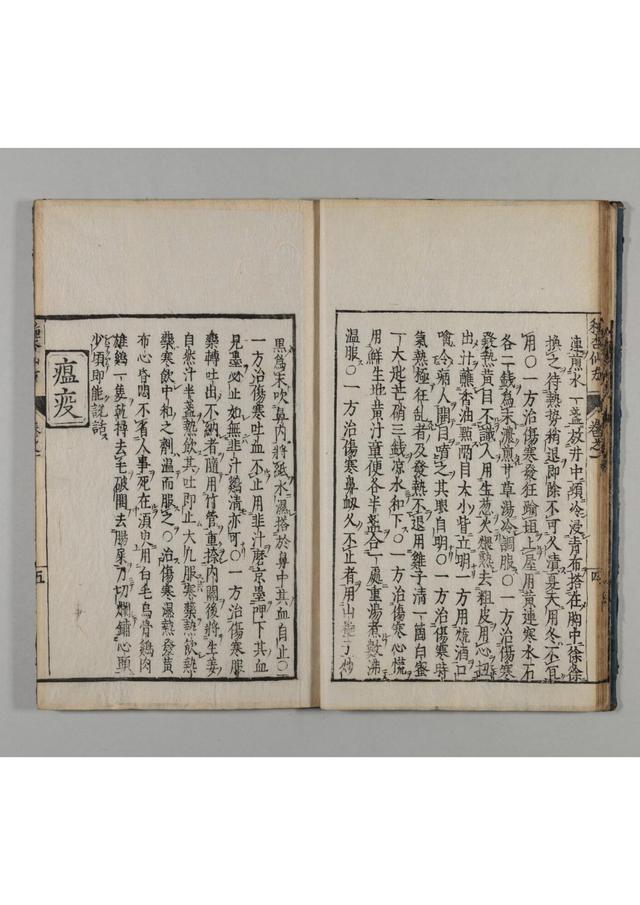 連煎水一盞放井中頓冷浸青布搭在胸中徐徐
換之待熱勢稍退即除不可久漬夏天用冬不宜
用○一方治傷寒發狂踰垣上屋用黃連寒水石
各二錢為末濃煎甘草湯冷調服○一方治傷寒
發熱黃目不識人用生葱火煨熱去粗皮用心扭
出汁蘸香油點兩目大小眥立明一方用燒酒口
噙令病人開目噴之其眼自明○一方治傷寒時
氣熱極狂亂者及發熱不退用雞子清一箇白蜜
一大匙芒硝三錢凉水和下○一方治傷寒心慌
用鮮生地黃汁童便各半盞合一處重湯煮數沸
溫服○一方治傷寒鼻衂久不止者用山梔子炒
黑為末吹鼻內將紙水濕搭於鼻中其血自止○
一方治傷寒吐血不止用韭汁磨京墨門下其血
見墨必止如無韭汁鷄清亦可○一方治傷寒服
藥轉吐出不納者隨用竹管重捺內關後將生姜
自然汁半盞熱飲其吐即止大凢服寒藥熱飲熱
藥寒飲中和之劑溫而服之○治傷寒濕熱發黃
布心昏悶不省人事死在須臾用白毛烏骨鷄肉
雄鷄一隻乾撏去毛破開去腸屎刀切爛鋪心頭
少頃即能說話
瘟疫
卷之一
四
五